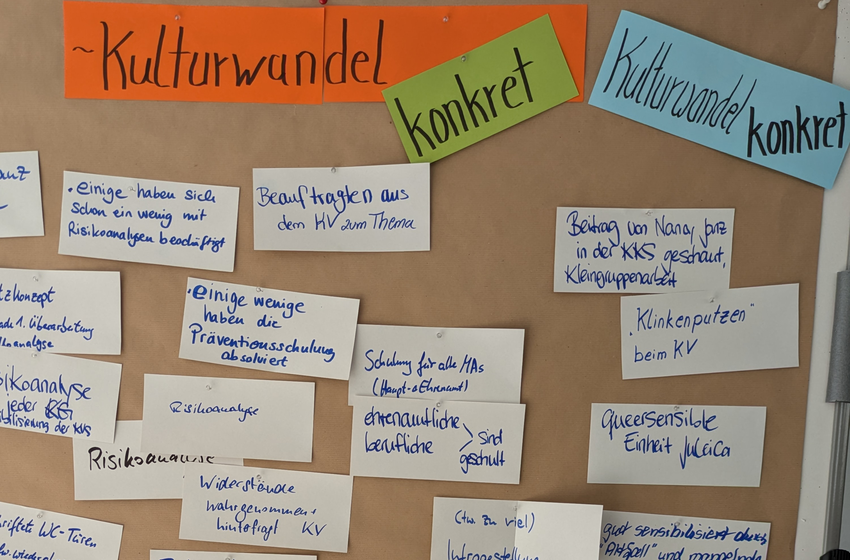 ~Kulturwandel
konkret
Kulturwandel
konkret
anz
• einige haben sich
schon ein wenig mit
Risikoanalysen beschäftigt
Beauftragten aus
dem KV zum Thema
Beitrag von Nana, Janz
in der KKS geschaut,
Kleingruppenarbeit
tzkonzept
1. Überarbeitung
analyse
• einige wenige
haben die
Präventionsschulung
absolviert
Schulung für alle MAs
(Haupt- & Ehrenamt)
"Klinkenputzen"
beim KV
sikoanalyse
jeder KG
bilisierung der KVS
Risikoanalyse
ehrenamtliche
berufliche > sind
geschult
queersensible
Einheit JuLeiCa
Risikoanalyse
Widerstände
wahrgenommen +
hinterfragt KV
riftete WC-Türen
(tw. zu viel)
gut sensibilisiert durch